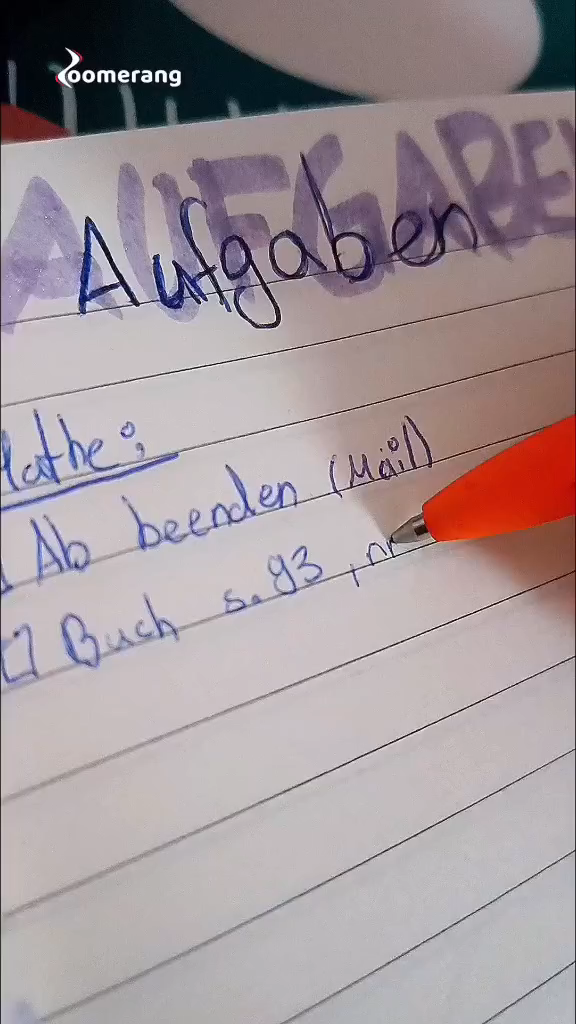 Zoomerang
AUFGABEN
Aufgaben
Mathe:
Ab beenden (Mail)
Buch s. 93, nr